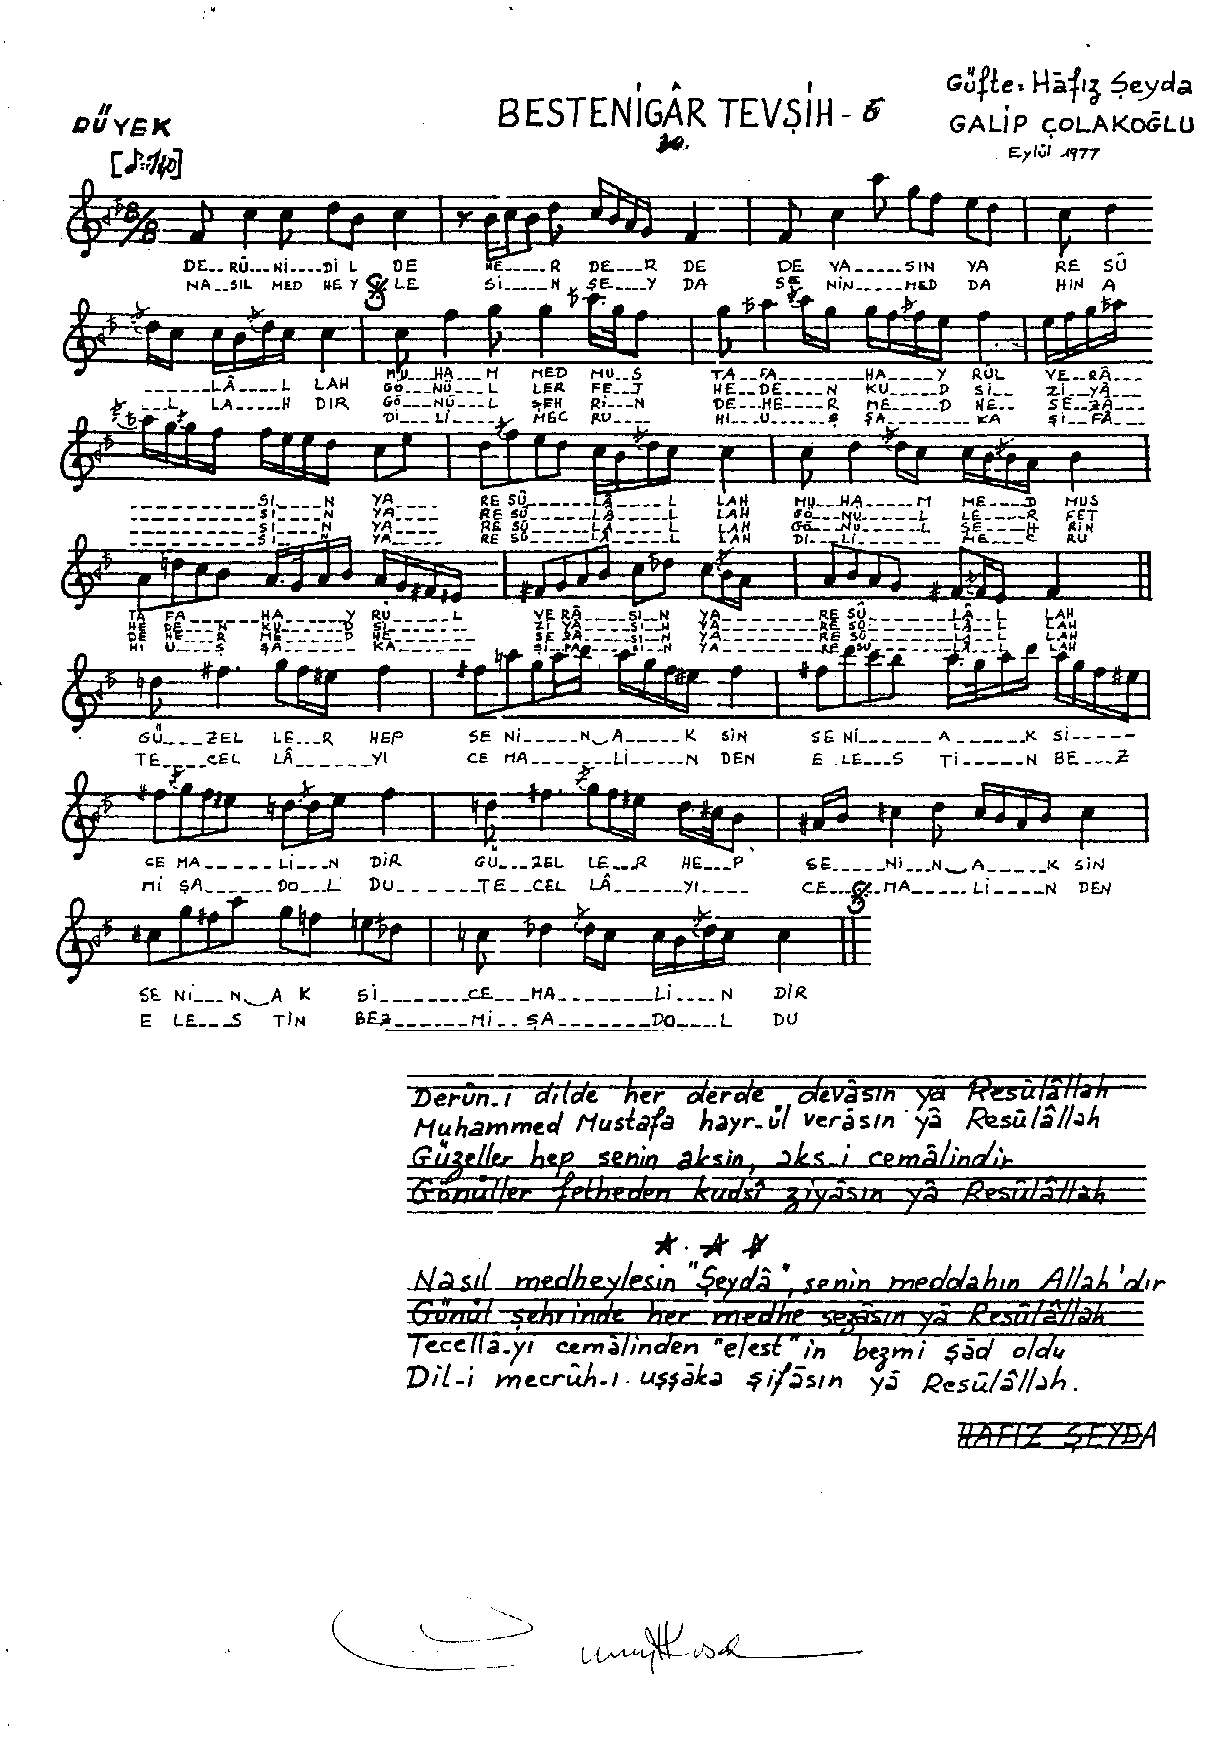 Güfte: Hâfız Şeyda
BESTENİGÂR TEVŞİH - 6
DÜYEK
GALİP ÇOLAKOĞLU
20.
Eylül 1977
[♪=140]
8/8
DE__RÛ__Nİ__DİL DE HE____R DER___R DE DE VA____SIN YA RE SÛ
NA__SIL MED HEY LE Sİ____N ŞE___Y DA SE NİN____MED DA HIN A
______LÂ____L LAH MU__HA__M MED MU__S TA__FA____HA____Y RÜL VE__RÂ___
___L LA____H DIR GÖ__NÜ__L LER FE__T HE__DE__N KU__D Sİ__ Zİ__YÂ___
GÖ__NÜ__L ŞEH Rİ__N DE__HE__R ME__D HE__ SE__ZÂ___
Dİ__Lİ____ MEC RU___ Hİ__U____Ş ŞA______KA Şİ__FÂ___
__________SI___N YA___ RE SÛ______LÂ____L LAH MU__HA___M ME__D MUS
__________SI___N YA___ RE SÛ______LÂ____L LAH GÖ__NÜ___L LE__R FET
__________SI___N YA___ RE SÛ______LÂ____L LAH GÖ__NÜ___L ŞE__H RİN
__________SI___N YA___ RE SÛ______LÂ____L LAH Dİ__Lİ____ ME__C RU
TA FA____HA____Y RÜ___L VE RÂ___SI__N YA______RE SÛ_____LÂ__L LAH
HE DE__N KU____D Sİ____ Zİ YÂ___SI__N YA______RE SÛ_____LÂ__L LAH
DE HE__R ME____D HE____ SE ZÂ___SI__N YA______RE SÛ_____LÂ__L LAH
Hİ U__Ş ŞA____ KA____ Şİ FÂ___SI__N YA______RE SÛ_____LÂ__L LAH
GÜ___ZEL LE__R HEP SE Nİ____N_A___K SİN SE Nİ_____A____K Sİ____
TE____CEL LÂ_____Yİ CE MA______Lİ___N DEN E LE___S Tİ____N BE___Z
CE MA_____Lİ__N DİR GÜ___ZEL LE__R HE__P SE____Nİ__N_A____K SİN
Mİ ŞA_____DO__L DU______TE__CEL LÂ_____Yİ___ CE____MA_____Lİ___N DEN
SE Nİ__N_A K Sİ_______CE__MA_______Lİ___N DİR
E LE__S TİN BEZ_______Mİ__ŞA_______DO___L DU
Derûn-i dilde her derde devâsın yâ Resûlâllah
Muhammed Mustafa hayr-ül verâsın yâ Resûlâllah
Güzeller hep senin aksin, aks-i cemâlindir
Gönüller fetheden kudsî ziyâsın yâ Resûlâllah
★ . ★ ★
Nasıl medheylesin "Şeydâ", senin meddahın Allah'dır
Gönül şehrinde her medhe sezâsın yâ Resûlâllah
Tecellâ-yi cemâlinden "elest"in bezmi şâd oldu
Dil-i mecrûh-ı uşşâka şifâsın yâ Resûlâllah.
HAFIZ ŞEYDA